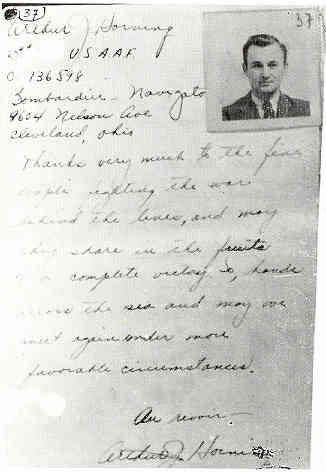 37
37
Arthur J Horning
U S A A F
O 136598
Bombardier - Navigato
9604 Nelson Ave
Cleveland, Ohio
Thanks very much to the fine
people fighting the war
behind the lines, and may
they share in the fruits
of a complete victory. So, hands
across the sea and may we
meet again under more
favorable circumstances.
Au revoir -
Arthur J Horning